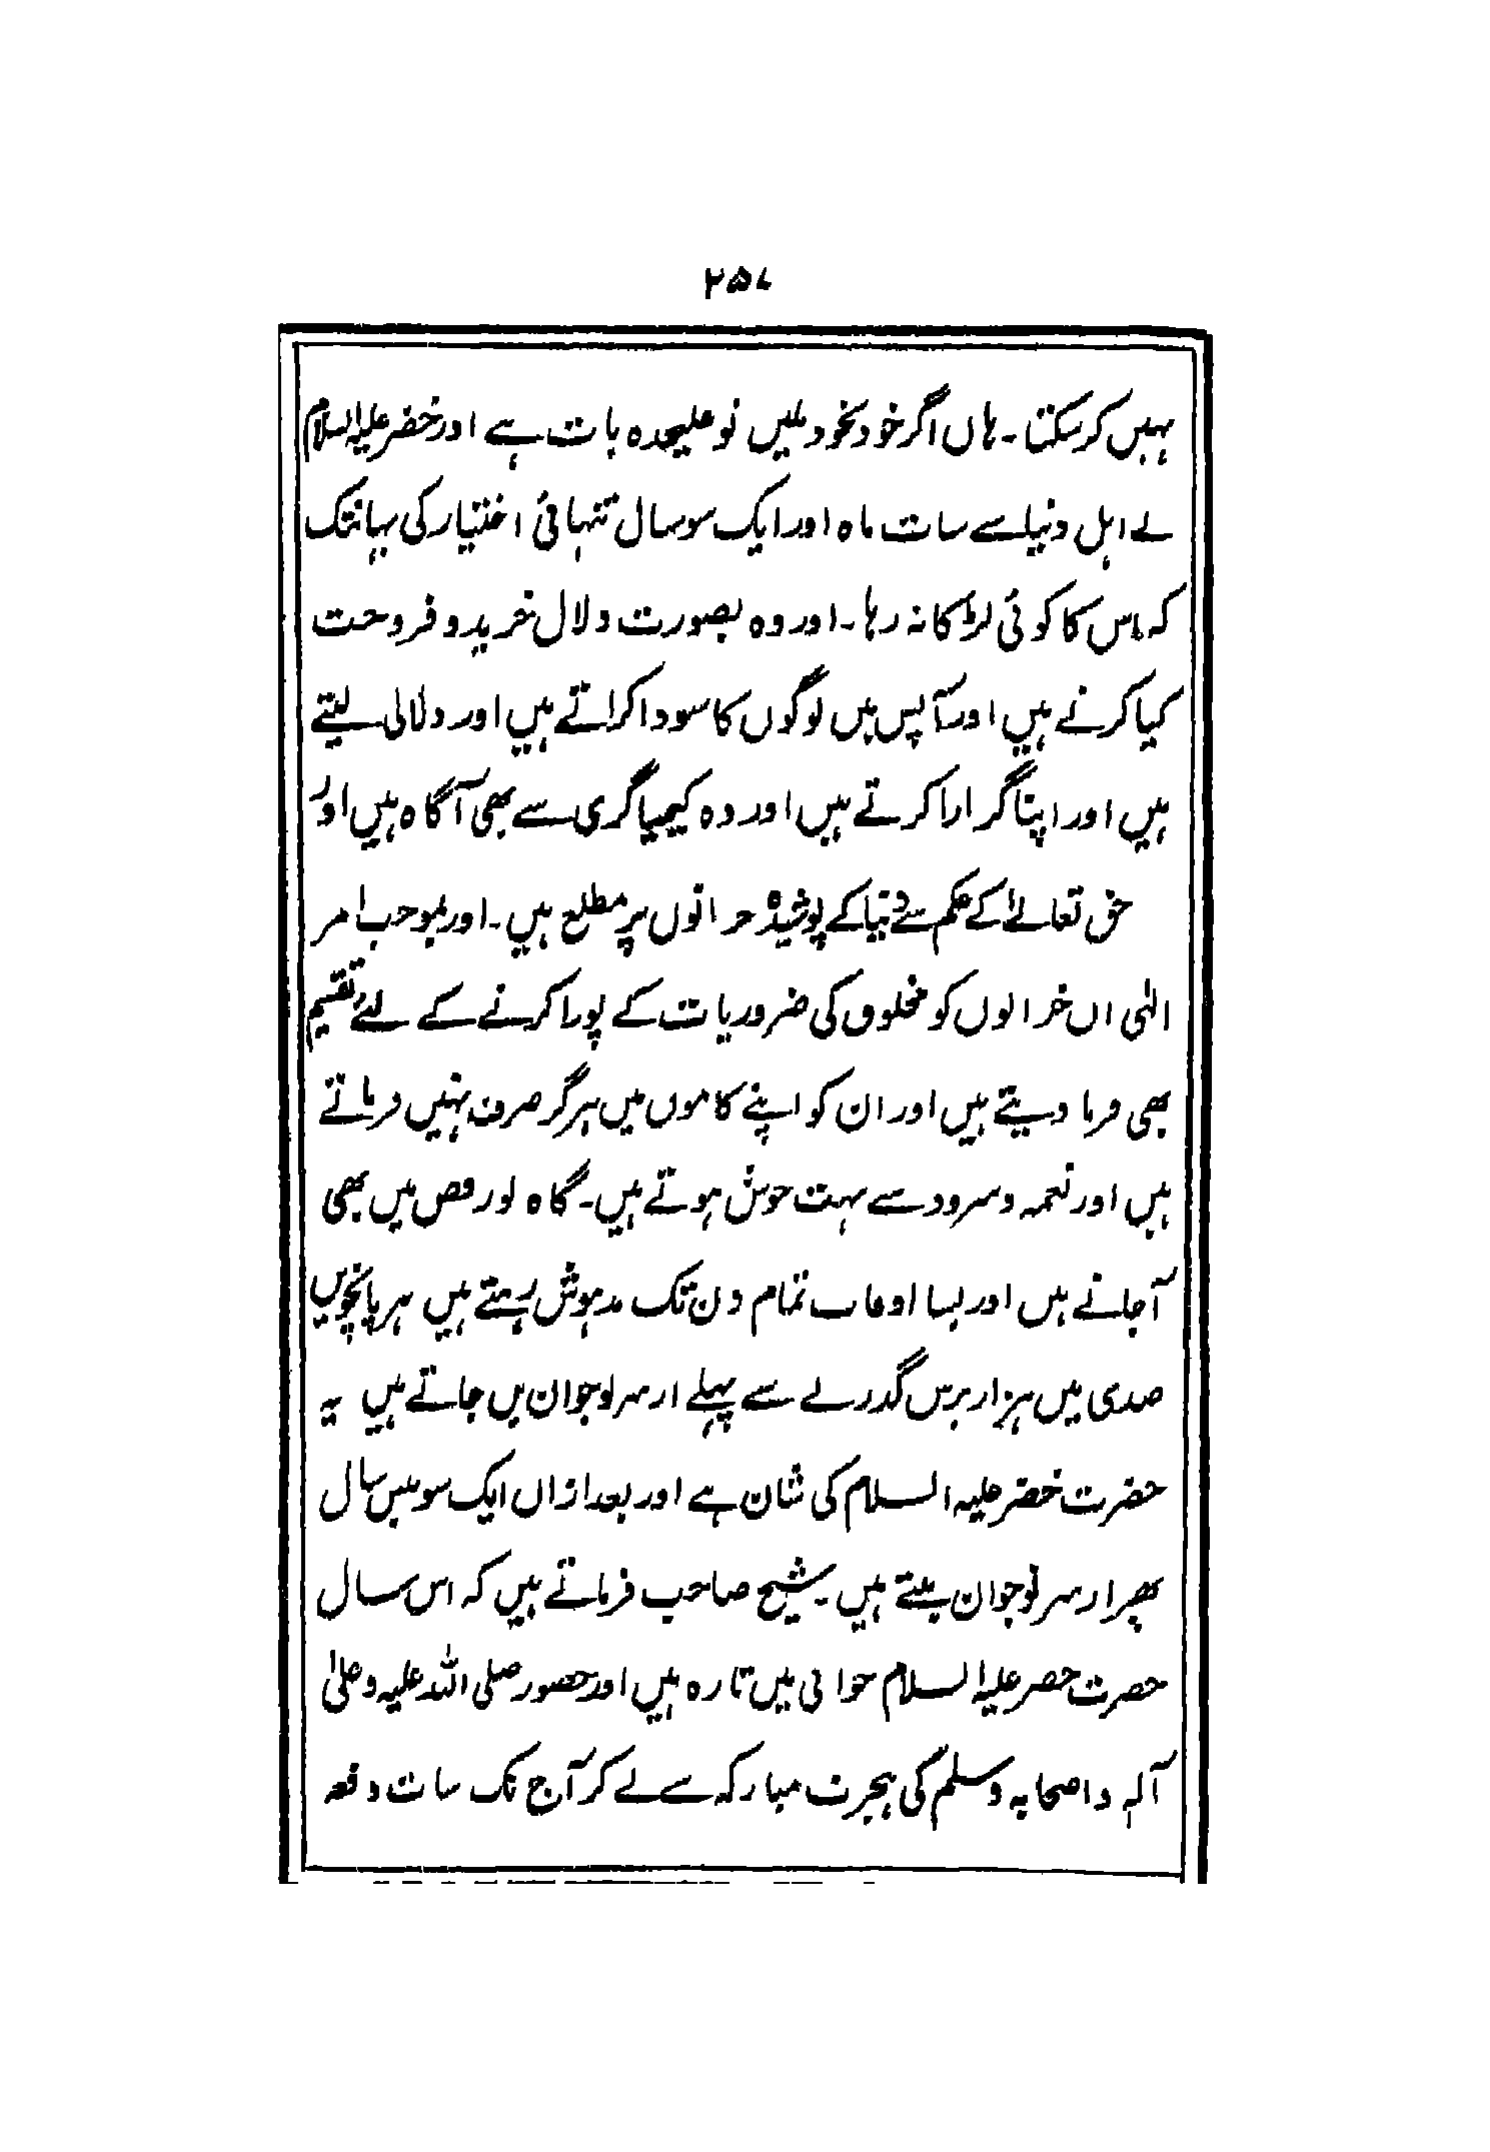 ۲۵۷
نہیں کر سکتا۔ ہاں اگر خود بخود ملیں تو علیحدہ بات ہے اور خضر علیہ السلام
نے اہل دنیا سے سات ماہ اور ایک سو سال تنہائی اختیار کی یہانتک
کہ اس کا کوئی لڑکا نہ رہا۔ اور وہ بصورت دلال خرید و فروخت
کیا کرتے ہیں اور آپس میں لوگوں کا سودا کراتے ہیں اور دلالی لیتے
ہیں اور اپنا گزارا کرتے ہیں اور وہ کیمیاگری سے بھی آگاہ ہیں اور
حق تعالےٰ کے حکم سے دنیا کے پوشیدہ خزانوں پر مطلع ہیں۔ اور بموجب امر
الٰہی ان خزانوں کو مخلوق کی ضروریات کے پورا کرنے کے لئے تقسیم
بھی فرما دیتے ہیں اور ان کو اپنے کاموں میں ہرگز صرف نہیں فرماتے
ہیں اور نغمہ و سرود سے بہت خوش ہوتے ہیں۔ گاہ اور رقص میں بھی
آ جاتے ہیں اور بسا اوقات تمام دن تک مدہوش رہتے ہیں ہر پانچویں
صدی میں ہزار برس گذرنے سے پہلے از سر نوجوان بن جاتے ہیں یہ
حضرت خضر علیہ السلام کی شان ہے اور بعد ازاں ایک سو بیس سال
پھر از سر نوجوان بنتے ہیں۔ شیخ صاحب فرماتے ہیں کہ اس سال
حضرت خضر علیہ السلام جوانی میں تازہ ہیں اور حضور صلی اللہ علیہ وعلیٰ
آلہ واصحابہ وسلم کی ہجرت مبارکہ سے لے کر آج تک سات دفعہ